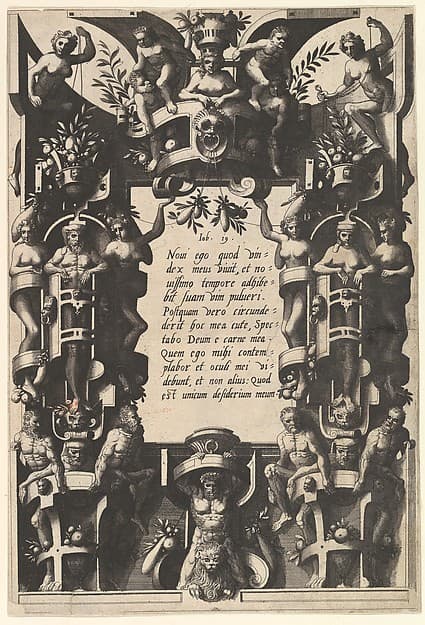 Iob · 19 ·
Noui ego quod vin=
dex meus viuit, et no=
uissimo tempore adhibe=
bit suam vim pulueri.
Postquam vero circunde=
derit hoc mea cute, Spec=
tabo Deum e carne mea.
Quem ego mihi contem=
plabor et oculi mei vi=
debunt, et non alius: Quod
est unicum desiderium meum.